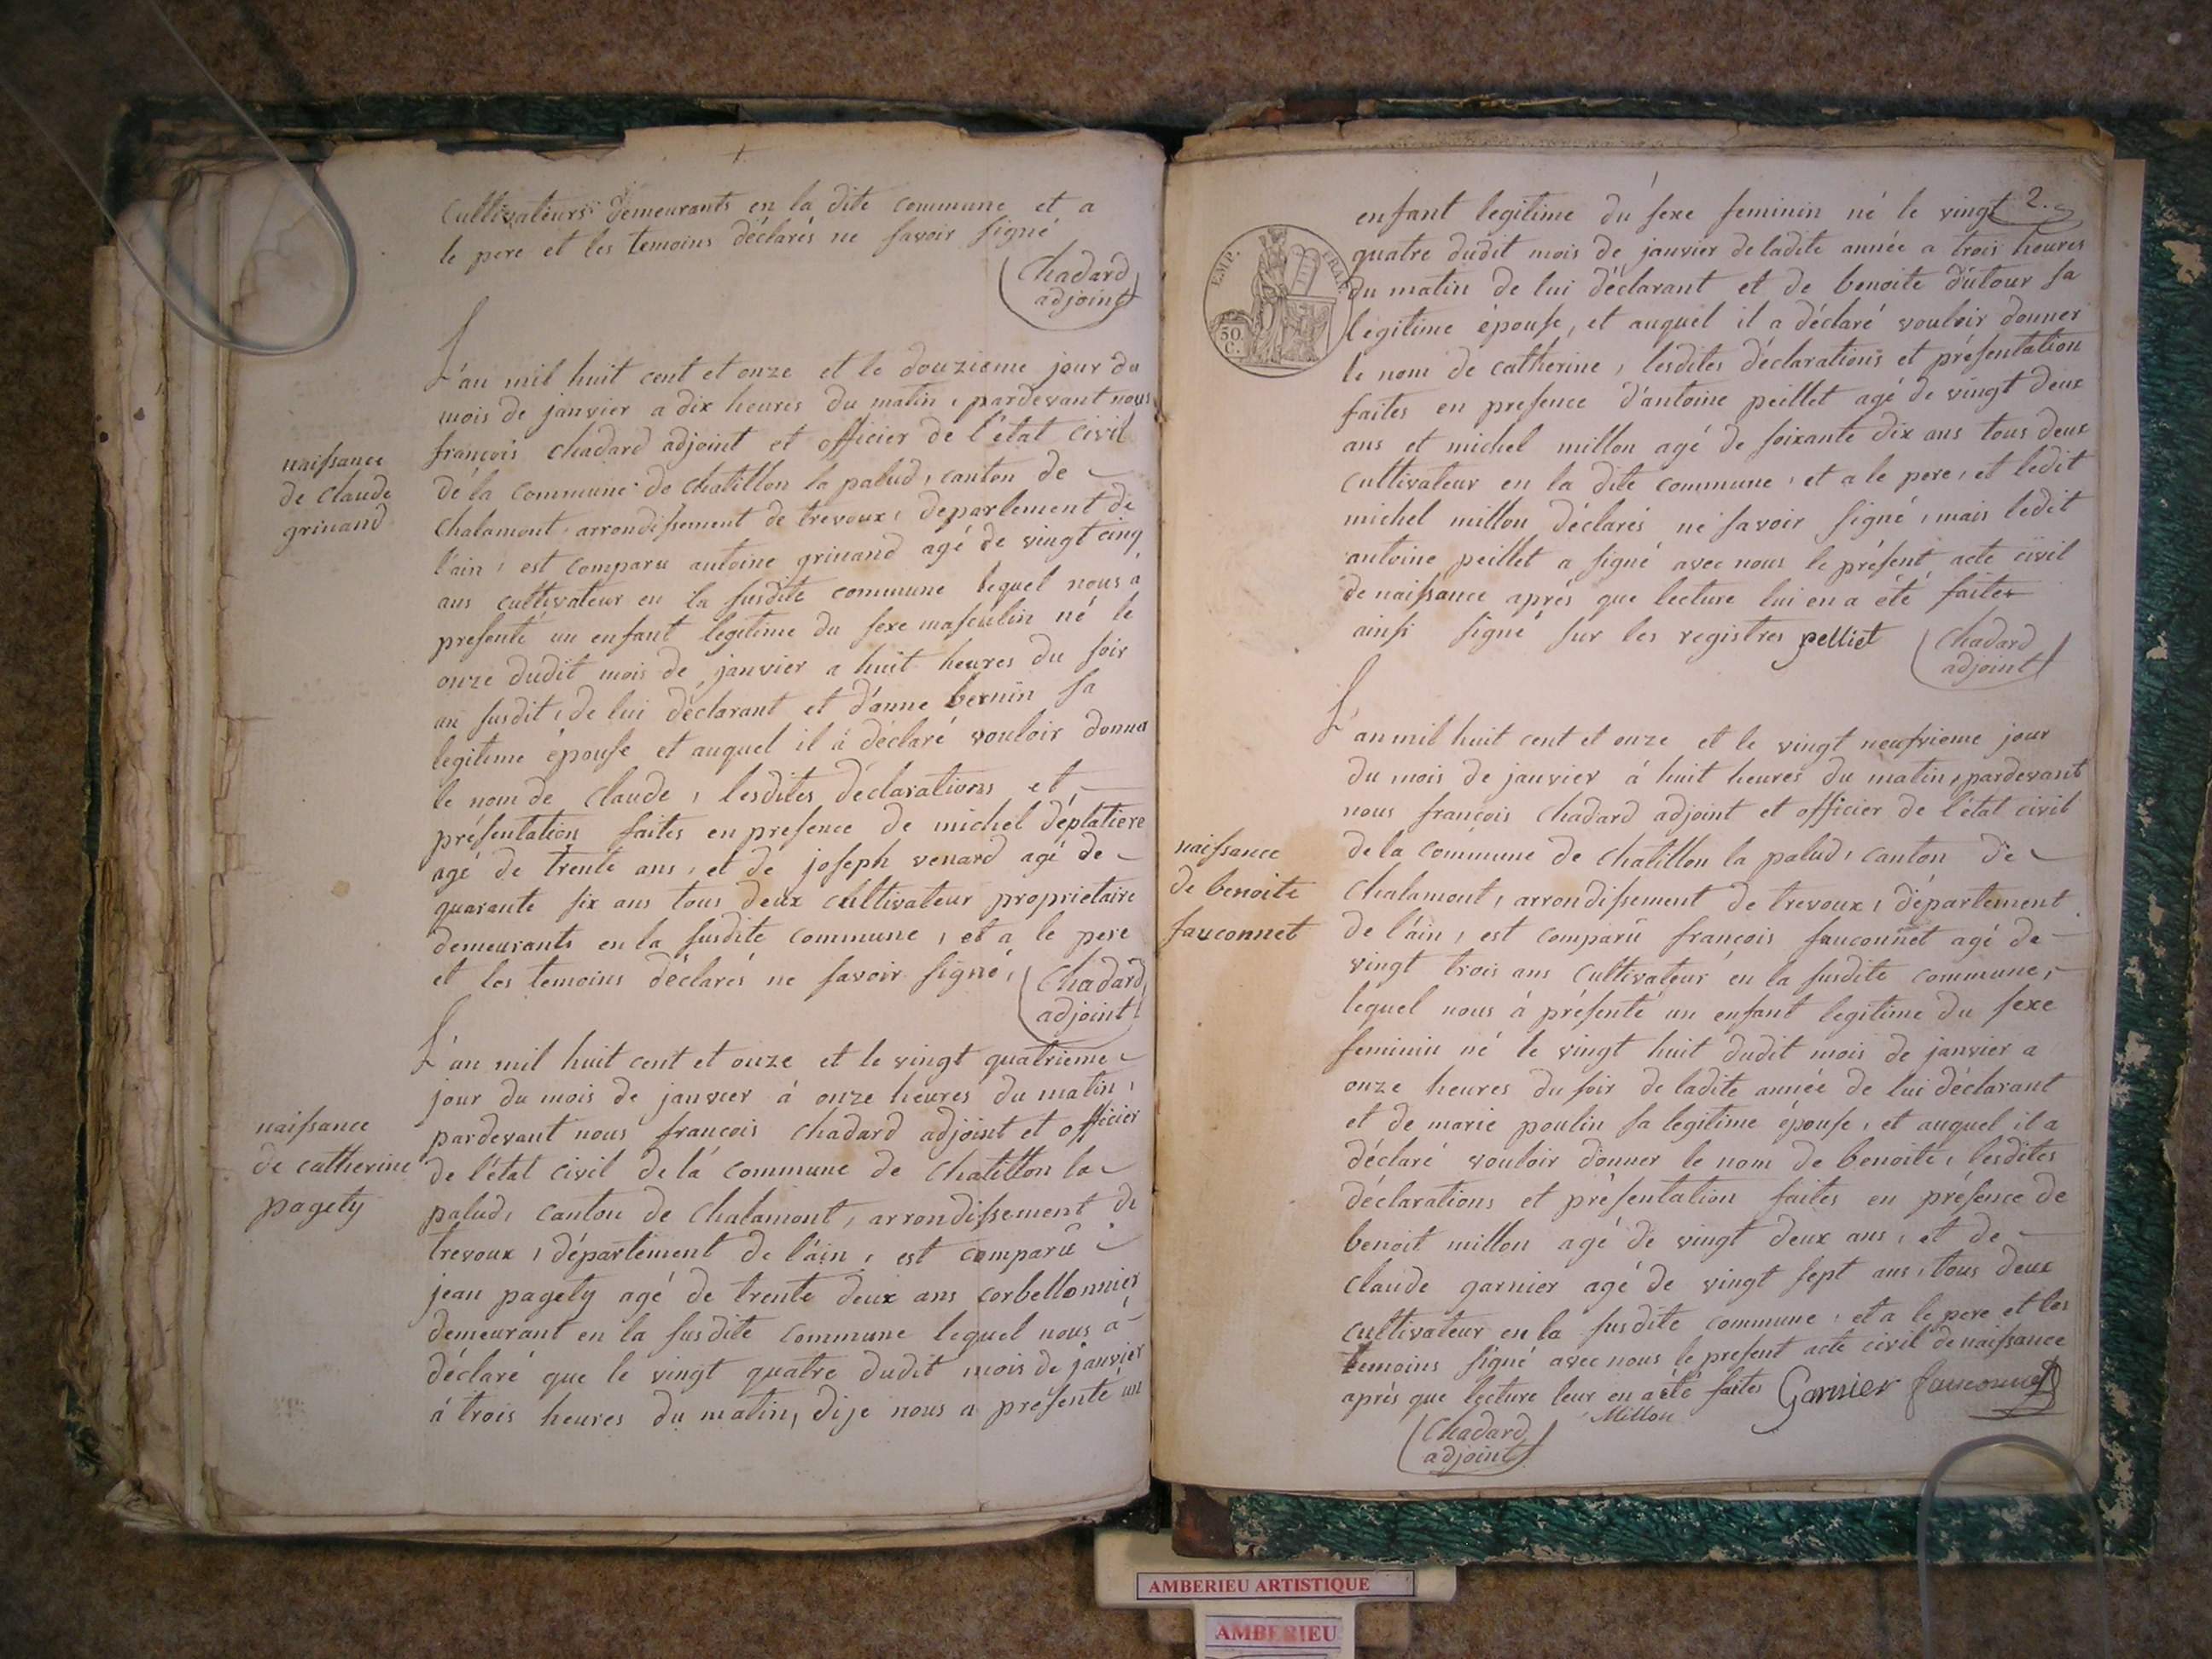 cultivateurs demeurants en la dite commune et a
le pere et les temoins déclarés ne savoir signé
Chadard
adjoint
L'an mil huit cent et onze et le douzieme jour du
mois de janvier a dix heures du matin, pardevant nous
françois chadard adjoint et officier de l'état civil
naissance
de claude
grinand
de la commune de chatillon la palud, canton de
chalamont, arrondissement de trevoux, département de
l'ain, est comparu antoine grinand agé de vingt cinq
ans cultivateur en la susdite commune lequel nous a
presenté un enfant legitime du sexe masculin né le
onze dudit mois de janvier a huit heures du soir
an susdit, de lui déclarant et d'anne bernin sa
legitime épouse et auquel il a déclaré vouloir donner
le nom de claude, lesdites déclarations et
présentation faites en presence de michel déplatiere
agé de trente ans, et de joseph venard agé de
quarante six ans tous deux cultivateur proprietaire
demeurants en la susdite commune, et a le pere
et les temoins déclarés ne savoir signé,
Chadard
adjoint
L'an mil huit cent et onze et le vingt quatrieme
jour du mois de janvier à onze heures du matin,
naissance
de catherine
pagety
pardevant nous francois chadard adjoint et officier
de l'état civil de la commune de chatillon la
palud, canton de chalamont, arrondissement de
trevoux, département de l'ain, est comparu
jean pagety agé de trente deux ans corbellonnier
demeurant en la susdite commune lequel nous a
déclaré que le vingt quatre dudit mois de janvier
à trois heures du matin, dije nous a présenté un
2.
EMP. FRAN.
50.
C.
enfant legitime du sexe feminin né le vingt
quatre dudit mois de janvier de ladite année a trois heures
du matin de lui déclarant et de benoite dutour sa
legitime épouse, et auquel il a déclaré vouloir donner
le nom de catherine, lesdites déclarations et présentation
faites en presence d'antoine peillet agé de vingt deux
ans et michel millon agé de soixante dix ans tous deux
cultivateur en la dite commune, et a le pere, et ledit
michel millon déclarés ne savoir signé, mais ledit
antoine peillet a signé avec nous le présent acte civil
de naissance aprés que lecture lui en a été faites
ainsi signé sur les registres pelliet
Chadard
adjoint
L'an mil huit cent et onze et le vingt neufvieme jour
du mois de janvier à huit heures du matin, pardevant
nous françois chadard adjoint et officier de l'état civil
naissance
de benoite
fauconnet
de la commune de chatillon la palud, canton de
chalamont, arrondissement de trevoux, département
de l'ain, est comparu françois fauconnet agé de
vingt trois ans cultivateur en la susdite commune,
lequel nous à présenté un enfant legitime du sexe
feminin né le vingt huit dudit mois de janvier a
onze heures du soir de ladite année de lui déclarant
et de marie poulin sa legitime épouse, et auquel il a
déclaré vouloir donner le nom de benoite, lesdites
déclarations et présentation faites en présence de
benoit millon agé de vingt deux ans, et de
claude garnier agé de vingt sept ans, tous deux
cultivateur en la susdite commune, et a le pere et les
temoins signé avec nous le present acte civil de naissance
aprés que lecture leur en a été faites Garnier fauconnet
Millon
Chadard
adjoint
AMBERIEU ARTISTIQUE
AMBERIEU